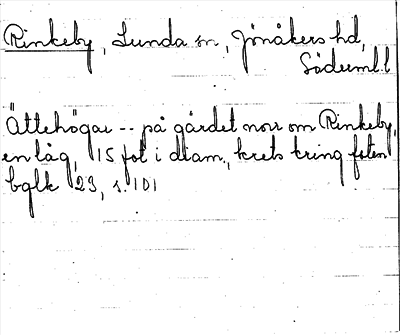 Rinkeby, Lunda sn, Jönåkers hd,
Söderml.l
Ättehögar -- på gärdet norr om Rinkeby,
en låg, 15 fot i diam., krets kring foten
bglk 23, s. 101